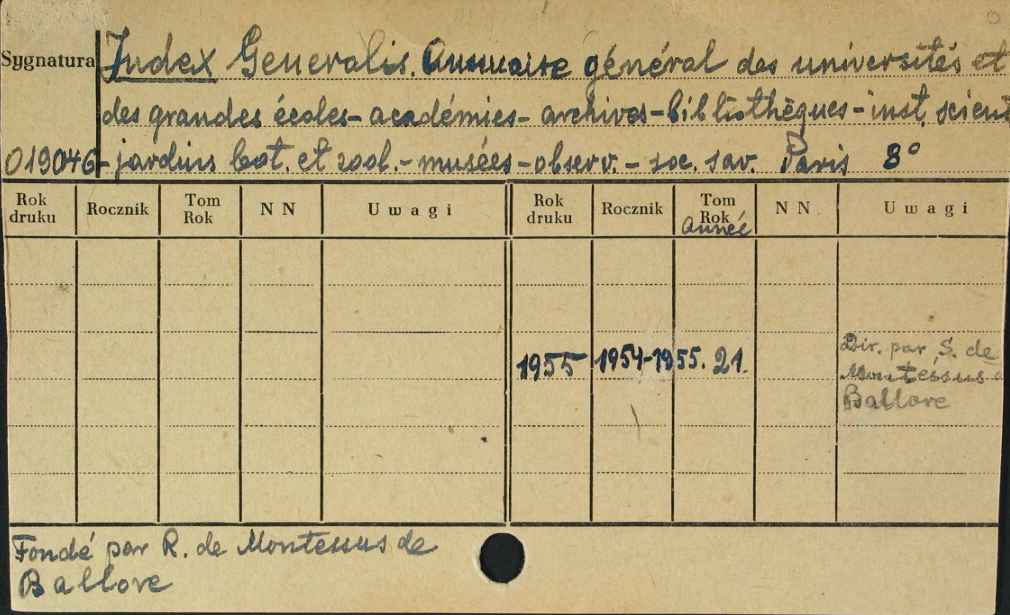 Sygnatura Index Generalis. Annuaire général des universités et
des grandes écoles - académies - archives - bibliothèques - inst. scient
019046 - jardins bot. et zool. - musées - observ. - soc. sav. Paris 8°
Rok druku Rocznik Tom Rok NN Uwagi Rok druku Rocznik Tom Rok NN Uwagi
année
1955 1954-1955. 21.
Dir. par S. de
Montessus de
Ballore
Fondé par R. de Montessus de
Ballore